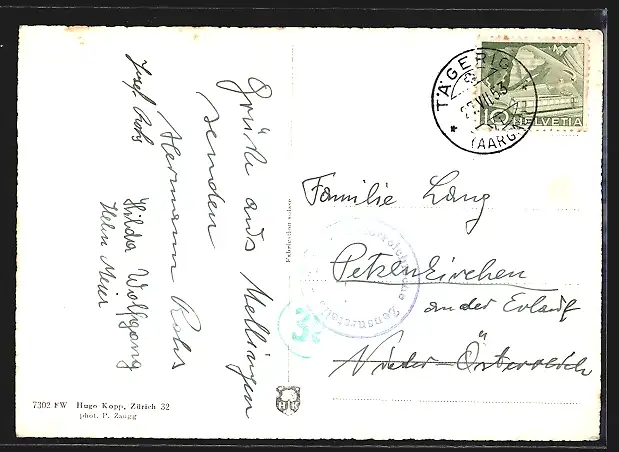 Grüße aus Mellingen
senden
Hermann Rohs
Josef Rohs
Hilda Wolfgang
Helen Meier
Fabrication suisse
7302 FW Hugo Kopp, Zürich 32
phot. P. Zaugg
TÄGERIG
(AARG.)
10 HELVETIA
Familie Lang
Petzenkirchen
an der Erlauf
Nieder-Österreich
Zensurstelle